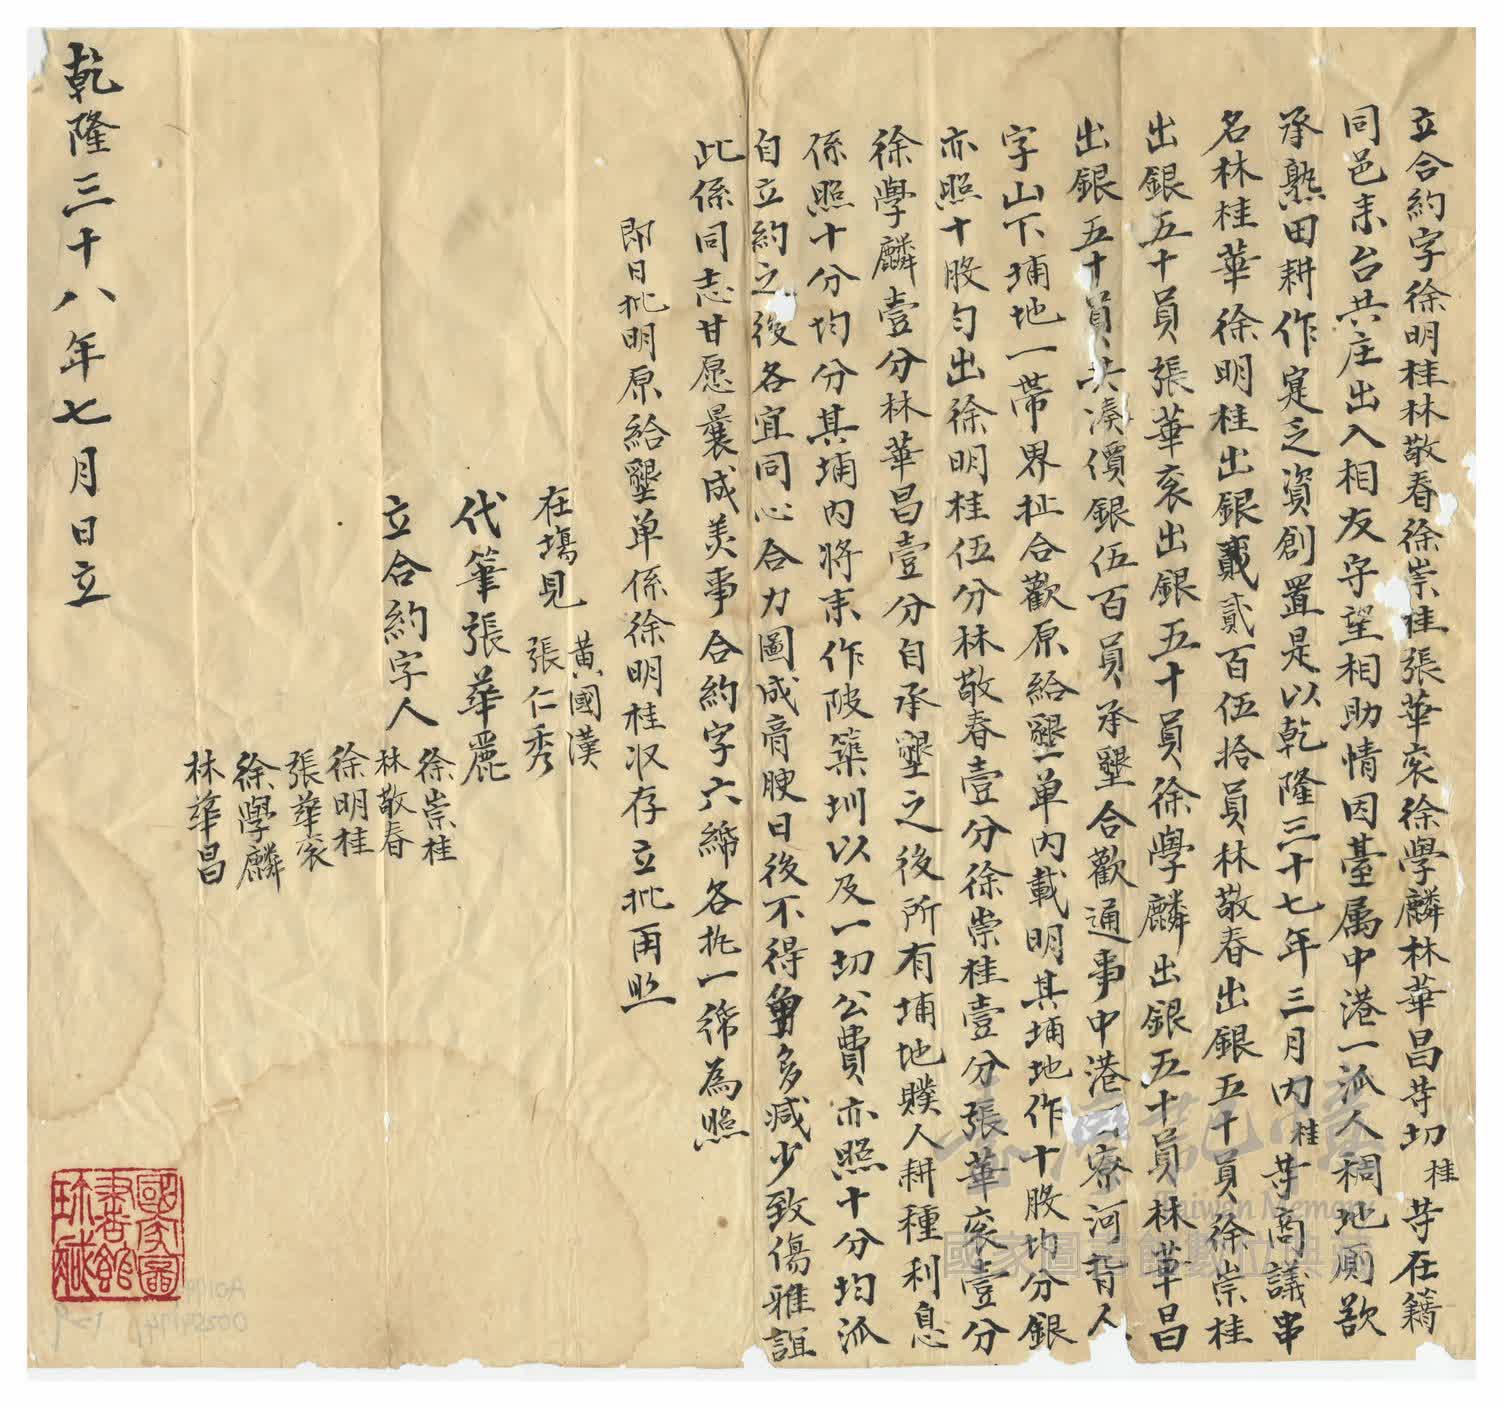 立合約字徐明桂林敬春徐崇桂張華袞徐學麟林華昌芽切桂芽在籍
同邑来台共庄出入相友守望相助情因臺属中港一派人稠地
承熟田耕作寔乏資創置是以乾隆三十七年三月内桂芽商議串
名林桂華徐明桂出銀貳百伍拾員林敬春出銀五十員徐崇桂
出銀五十員張華袞出銀五十員徐學麟出銀五十員林華昌
出銀五十員共湊價銀伍百員承墾合歡通事中港寮河背人
字山下埔地一帶界址合歡原給墾单内載明其埔地作十股均分銀
亦照十股匀出徐明桂伍分林敬春壹分徐崇桂壹分張華袞壹分
徐學麟壹分林華昌壹分自承墾之後所有埔地贌人耕種利息
係照十分均分其埔内将来作陂築圳以及一切公費亦照十分均派
自立約之後各宜同心合力圖成膏腴日後不得争多减少致傷雅誼
此係同志甘愿曩成美事合約字六䋛各扥一䋛為照
即日批明原給墾单係徐明桂収存立批再照
在塲見 黄國漢
張仁秀
代筆張華麗
立合約字人 徐崇桂
林敬春
徐明桂
張華袞
徐學麟
林華昌
乾隆三十八年七月日立
國家圖
書館
珍藏
臺灣記憶
Taiwan Memory
國家圖書館數位典藏